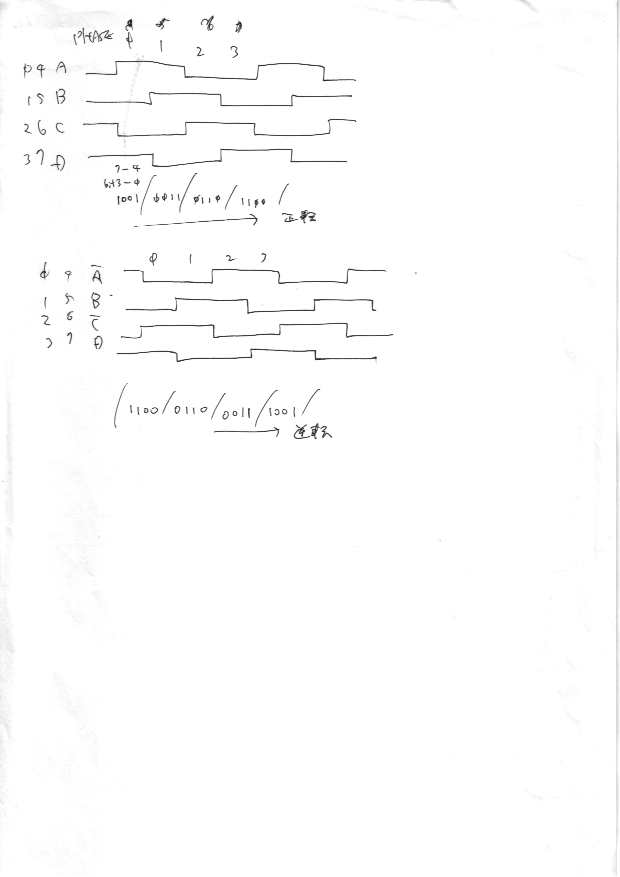 PHASE φ 1 2 3
φ 4 A
1 5 B
2 6 C
3 7 D
7-4
bit3-φ
1001/φφ11/φ11φ/11φφ/
正転
φ 1 2 3
φ 4 A̅
1 5 B
2 6 C̅
3 7 D
/1100/0110/0011/1001/
逆転